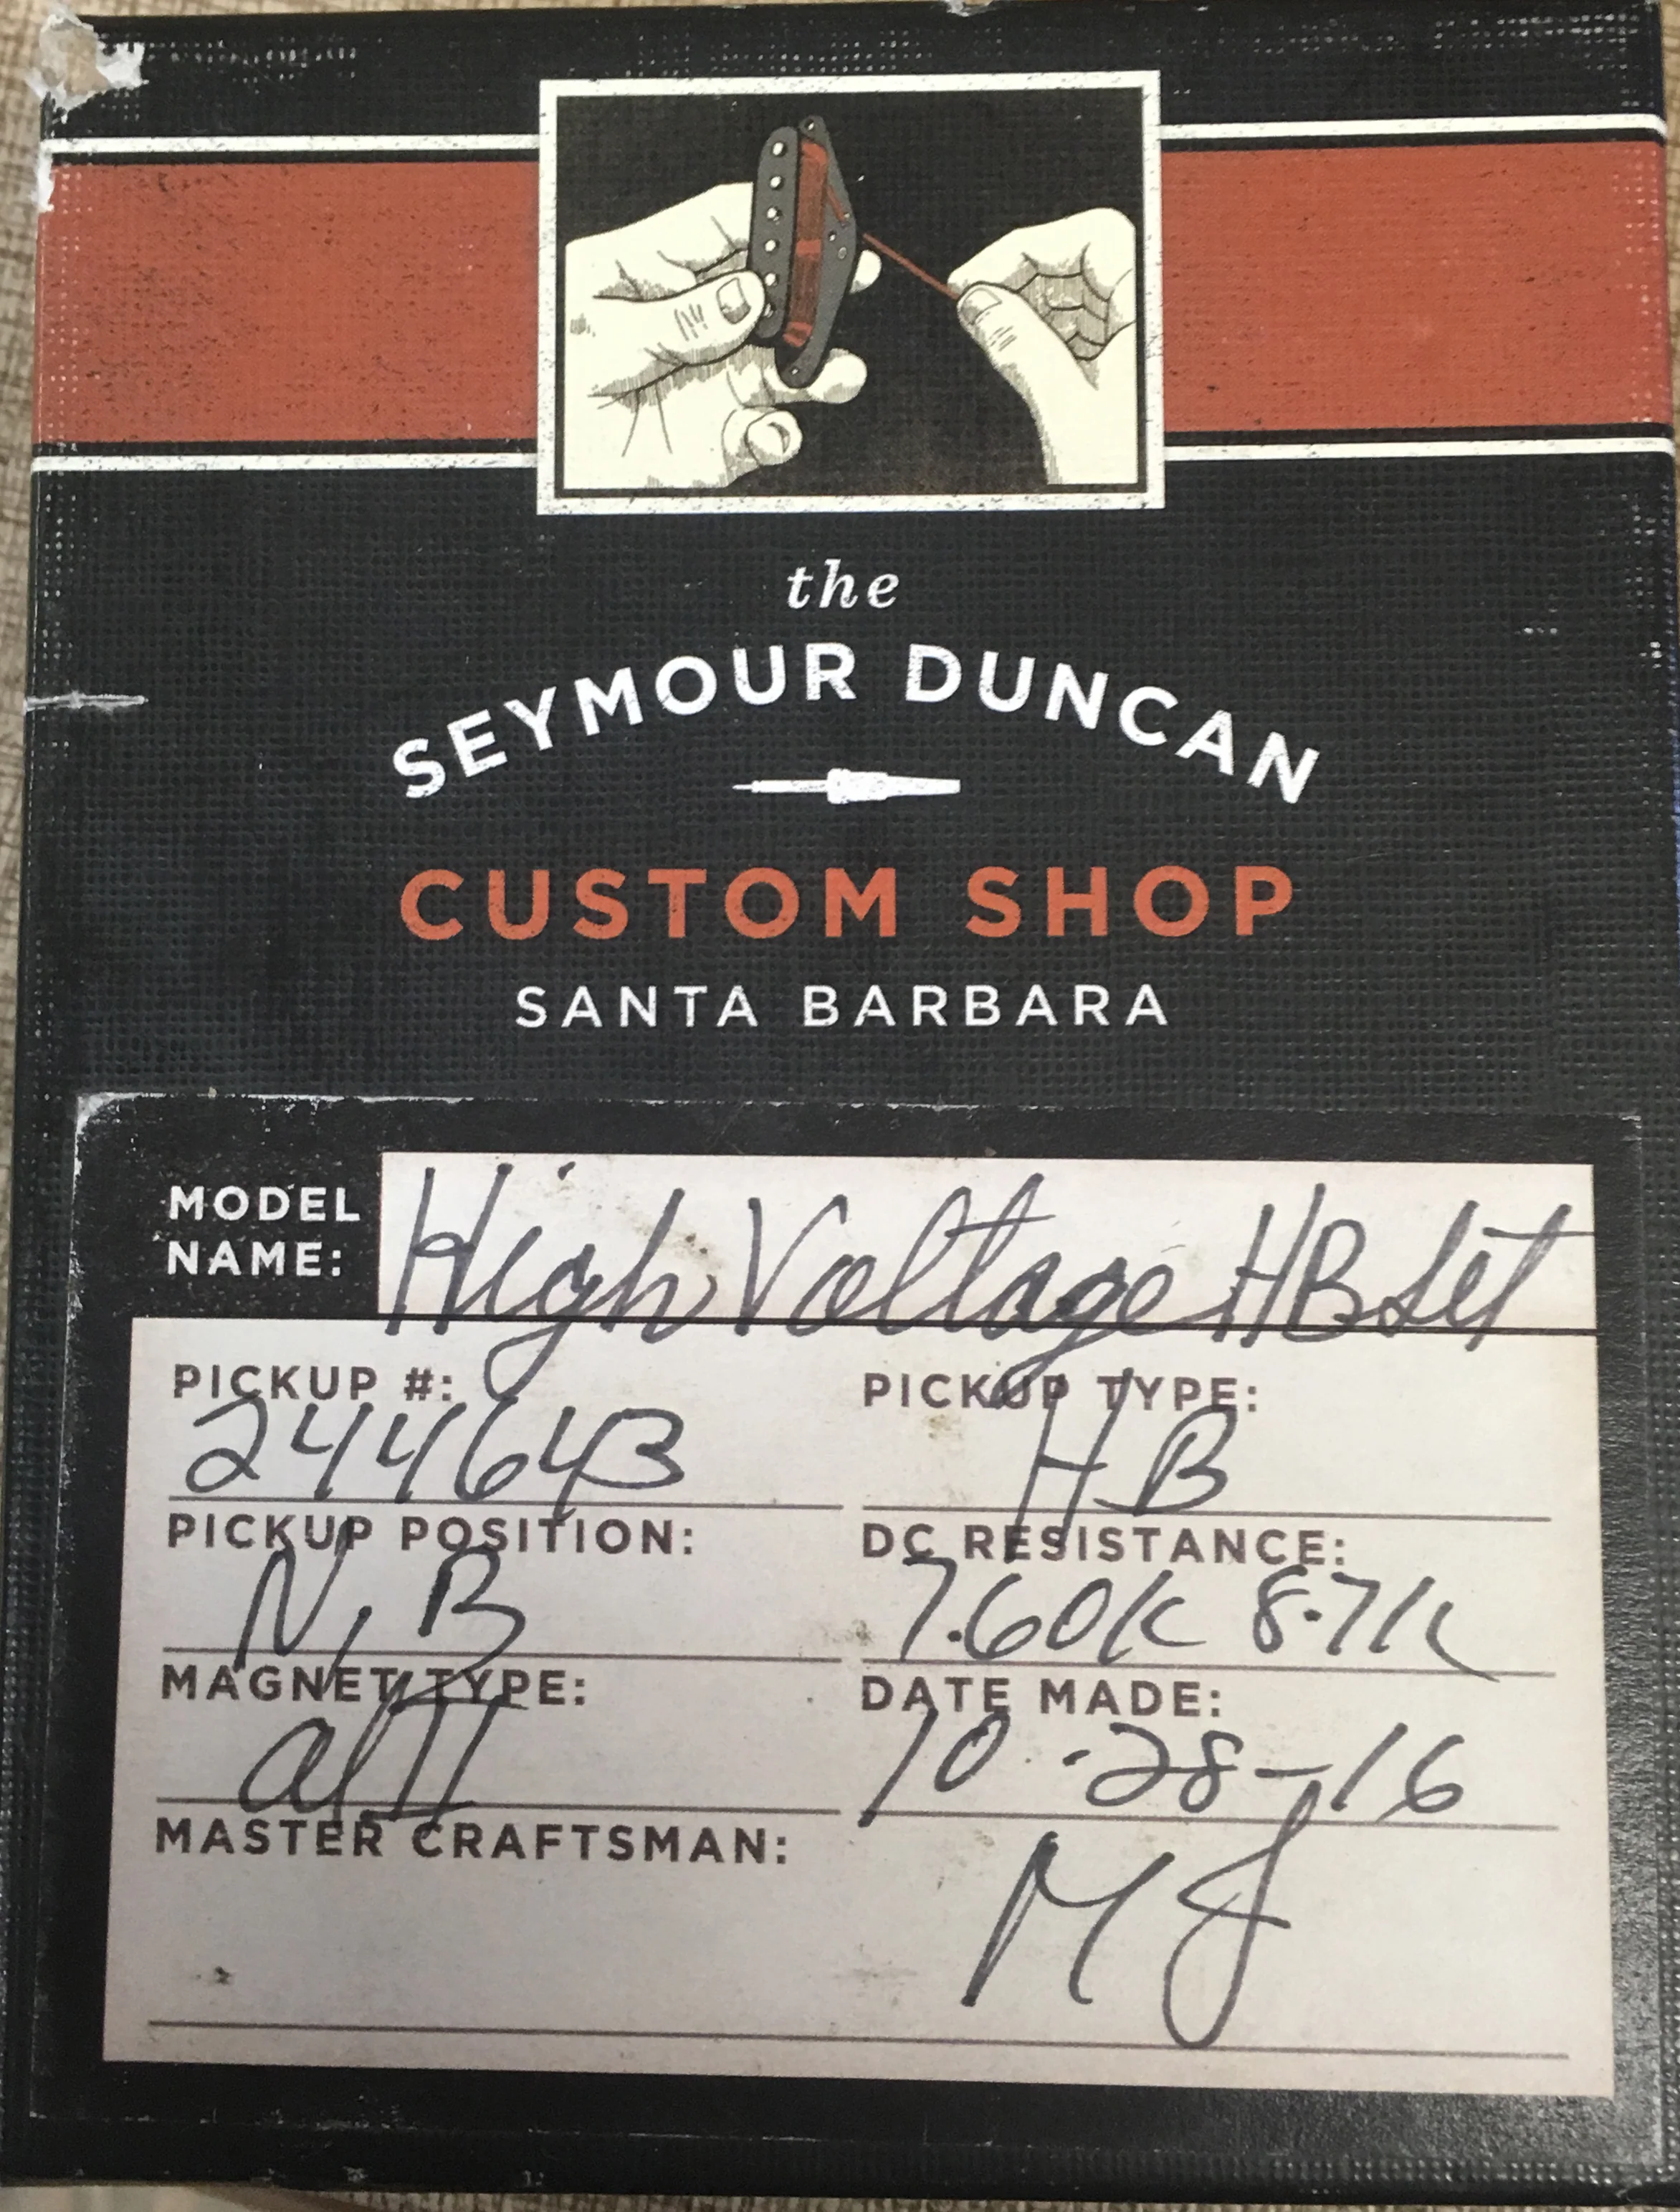 the
SEYMOUR DUNCAN
CUSTOM SHOP
SANTA BARBARA
MODEL NAME: High Voltage HB Set
PICKUP #: 244643
PICKUP TYPE: HB
PICKUP POSITION: N, B
DC RESISTANCE: 7.60K 8.71K
MAGNET TYPE: alII
DATE MADE: 10-28-16
MASTER CRAFTSMAN: MJ